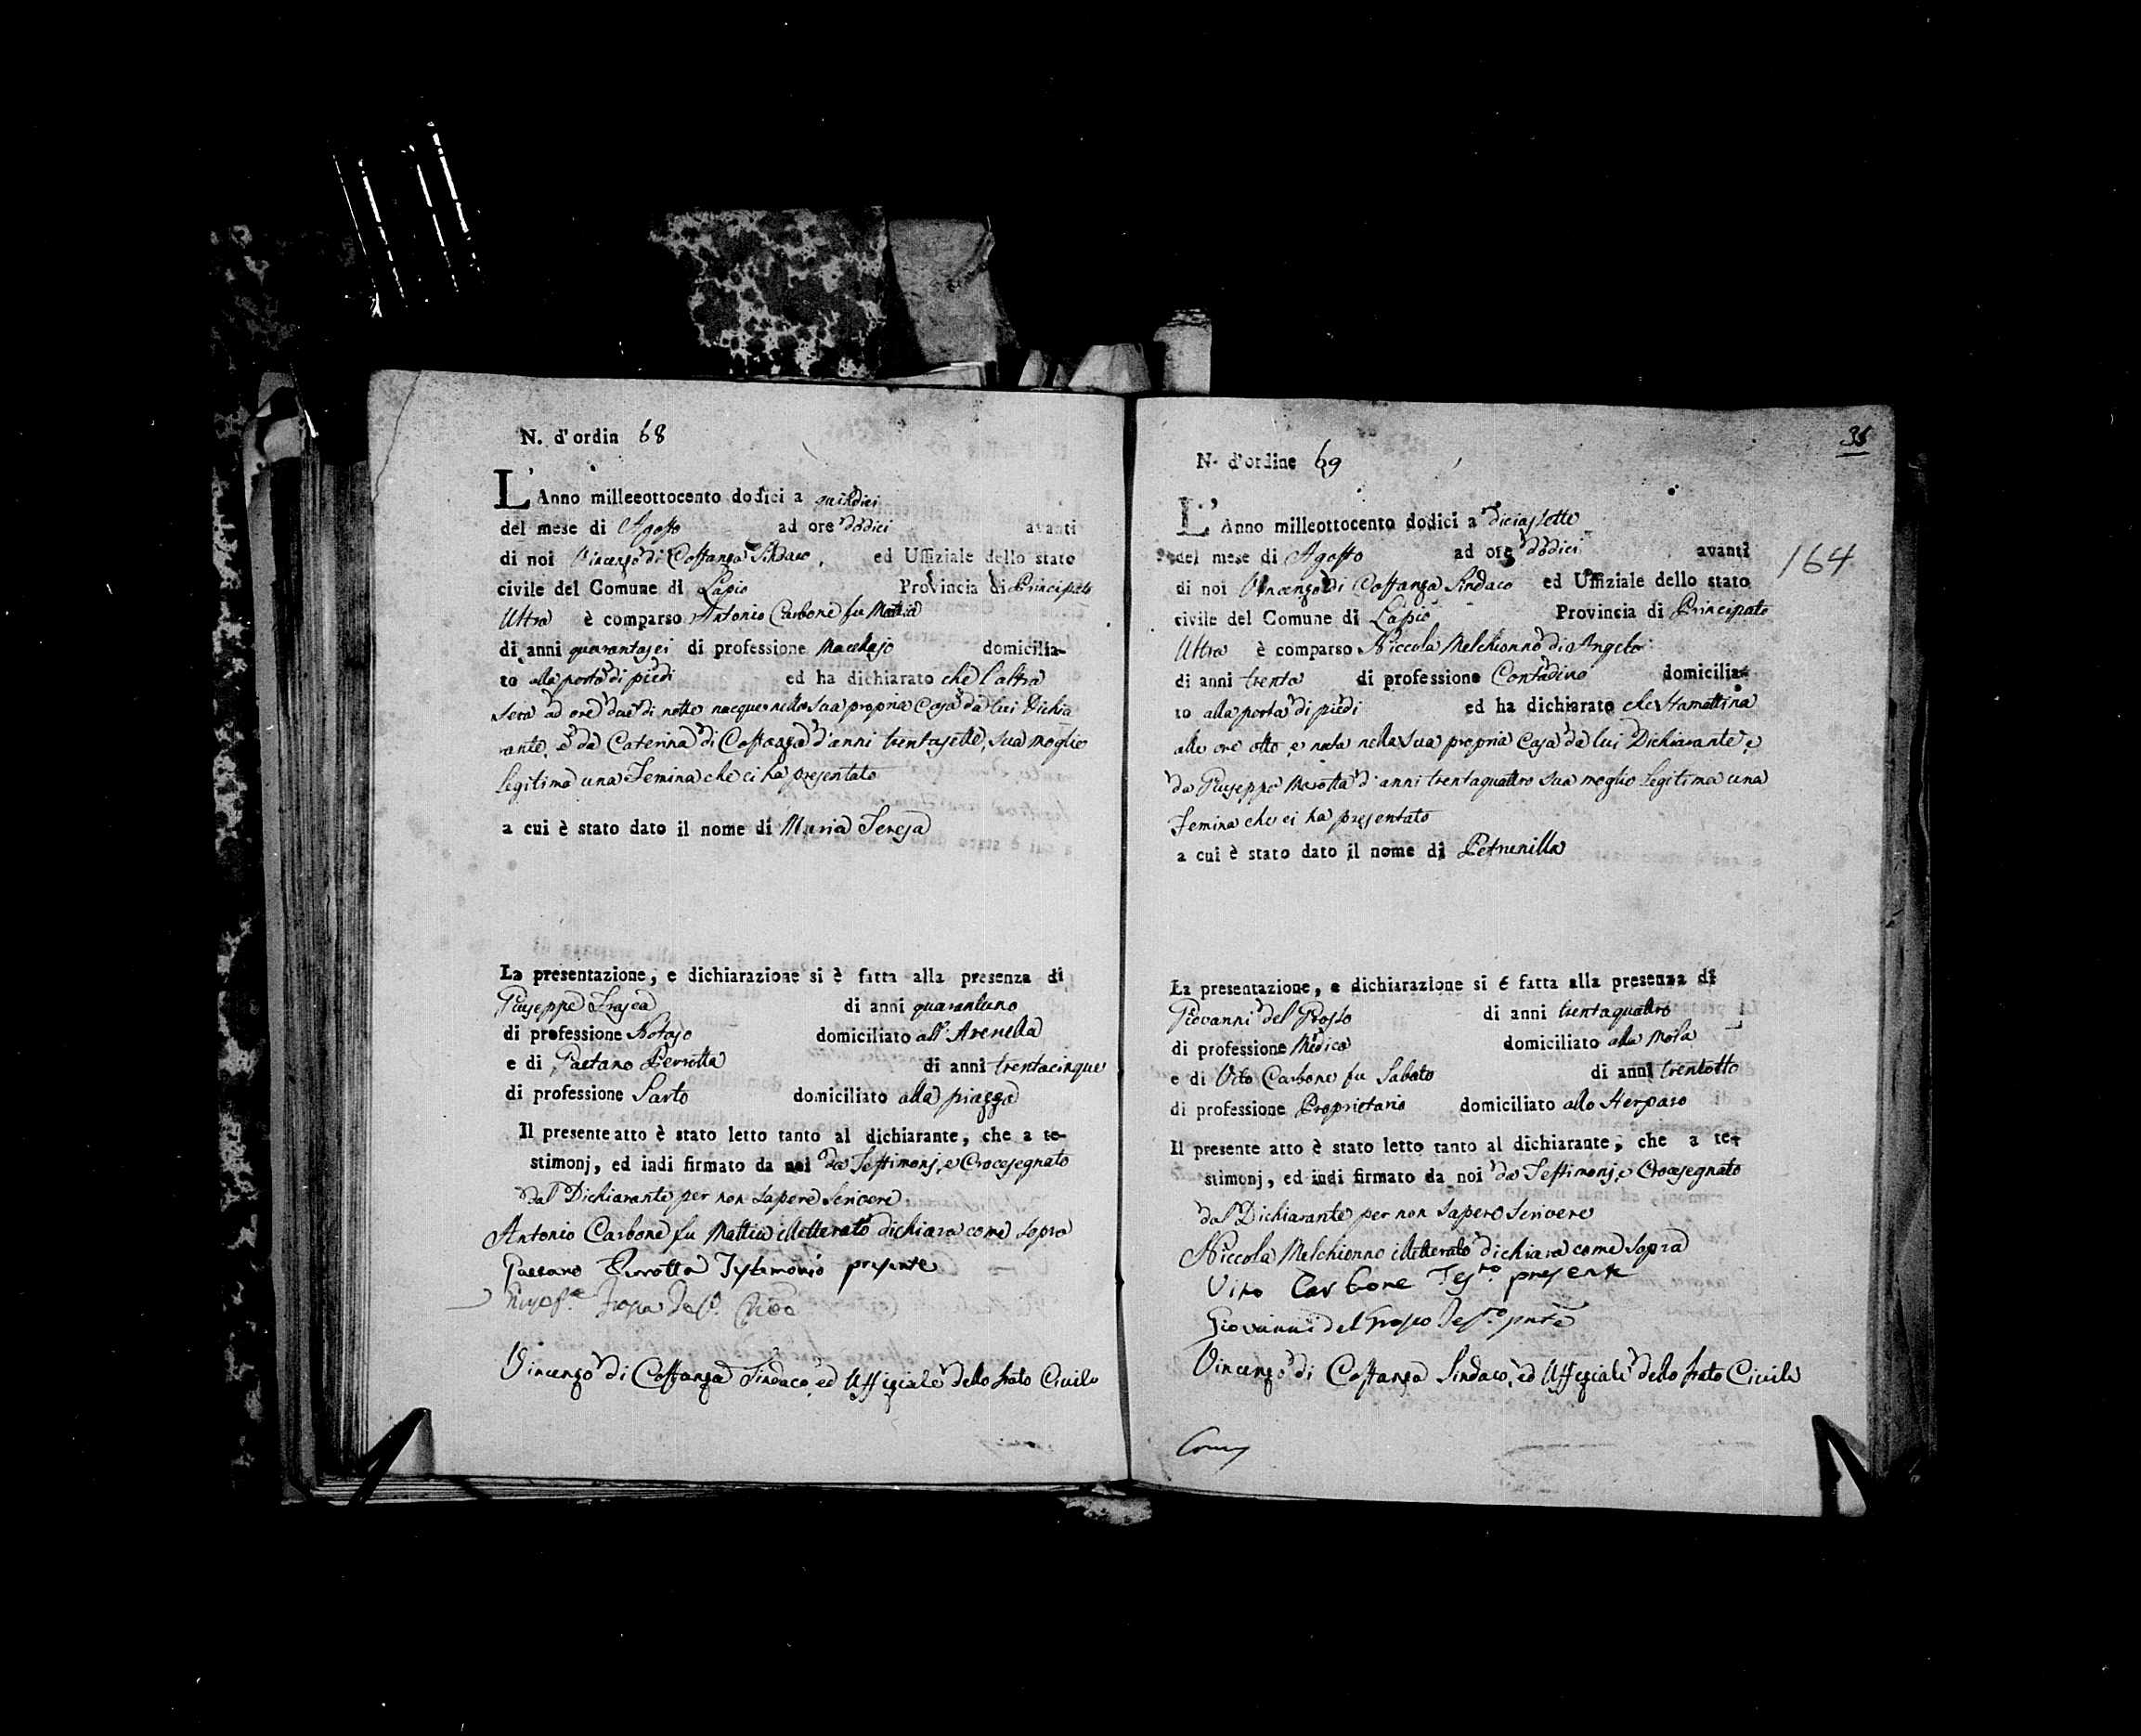 N. d'ordin 68
L'Anno milleeottocento dodici a quindici
del mese di Agosto ad ore dodici avanti
di noi Vincenzo di Costanza Sindaco, ed Uffiziale dello stato
civile del Comune di Lapio Provincia di Principato
Ultra è comparso Antonio Carbone fu Mattia
di anni quarantasei di professione Macellajo domicilia-
to alla porta di piedi ed ha dichiarato che l'altra
sera ad ore due di notte nacque nella sua propria Casa da lui Dichia
rante, e da Caterina di Costanza d'anni trentasette, sua moglie
legitima una Femina che ci ha presentato
a cui è stato dato il nome di Maria Teresa
La presentazione, e dichiarazione si è fatta alla presenza di
Giuseppe Frasca di anni quarantuno
di professione Notajo domiciliato all'Arenella
e di Gaetano Perrotta di anni trentacinque
di professione Sarto domiciliato alla piazza
Il presente atto è stato letto tanto al dichiarante, che a te-
stimonj, ed indi firmato da noi da Testimonj, e Crocesegnato
dal Dichiarante per non sapere Scrivere
Antonio Carbone fu Mattia illetterato dichiara come sopra
Gaetano Perrotta Testimonio presente
Vincenzo di Costanza Sindaco, ed Uffiziale dello stato Civile
35
N. d'ordine 69
L'Anno milleottocento dodici a diciassette
del mese di Agosto ad ore dodici avanti
164
di noi Vincenzo di Costanza Sindaco ed Uffiziale dello stato
civile del Comune di Lapio Provincia di Principato
Ultra è comparso Niccola Melchionno di Angelo
di anni trenta di professione Contadino domicilia-
to alla porta di piedi ed ha dichiarato che stamattina
alle ore otto, e nata nella sua propria Casa da lui Dichiarante, e
da Giuseppa d'anni trentaquattro sua moglie legitima una
Femina che ci ha presentato
a cui è stato dato il nome di Petrunilla
La presentazione, e dichiarazione si è fatta alla presenza di
Giovanni del Grosso di anni trentaquattro
di professione Medico domiciliato alla Mola
e di Vito Carbone fu Sabato di anni trentotto
di professione Proprietario domiciliato allo
Il presente atto è stato letto tanto al dichiarante, che a te-
stimonj, ed indi firmato da noi da Testimonj, e Crocesegnato
dal Dichiarante per non sapere Scrivere
Niccola Melchionno illetterato dichiara come sopra
Vito Carbone Testo. presente
Giovanni del Grosso Testo. pnte
Vincenzo di Costanza Sindaco, ed Uffiziale dello stato Civile